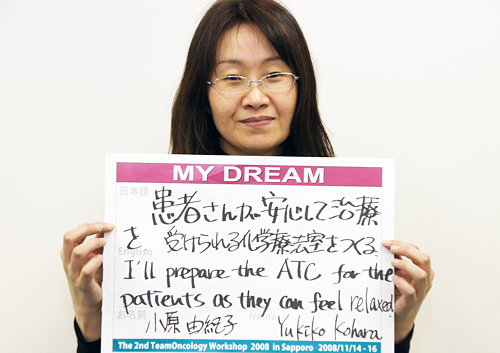 MY DREAM
日本語
患者さんが安心して治療
を、受けられる化学療法室をつくる
English
I'll prepare the ATC for the
patients as they can feel relaxed
お名前
Name
小原 由紀子 Yukiko Kohara
The 2nd TeamOncology Workshop 2008 in Sapporo 2008/11/14 - 16